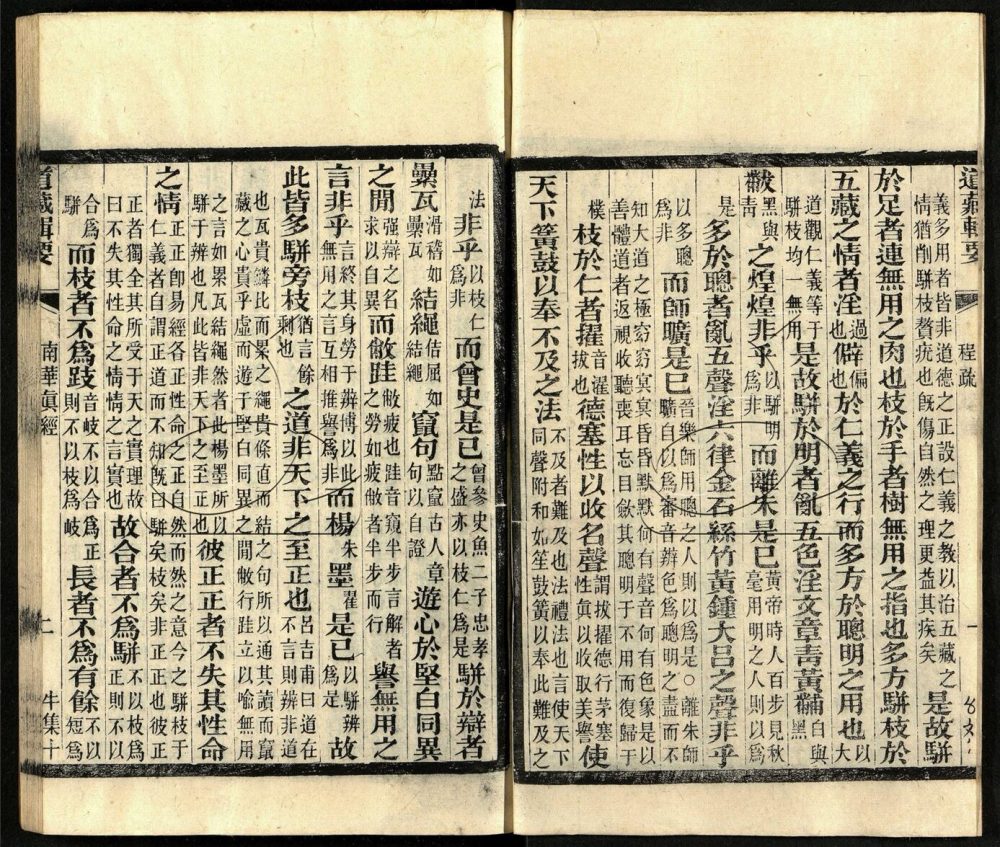 道藏輯要 程疏 一
義多用者皆非道德之正設仁義之教以治五藏之情猶削駢枝贅疣也既傷自然之理更益其疾矣是故駢
於足者連無用之肉也枝於手者樹無用之指也多方駢枝於
五藏之情者淫過也僻偏也於仁義之行而多方於聰明之用也以大
道觀仁義等于駢枝均一無用是故駢於明者亂五色淫文章青黃黼白與黑
黻黑與青之煌煌非乎以駢明爲非而離朱是已黃帝時人百步見秋毫用明之人則以爲
是多於聰者亂五聲淫六律金石絲竹黃鍾大呂之聲非乎
以多聰爲非而師曠是已晉樂師用聰之人則以爲是○離朱師曠自以爲審音辨色爲聰明之盡而不
知大道之極窈窈冥冥昏昏默默何有聲音何有色象是以善體道者返視收聽喪耳忘目歛其聰明于不用而復歸于
樸枝於仁者擢音濯拔也德塞性以收名聲謂拔擢德行茅塞性真以收取美譽使
天下簧鼓以奉不及之法不及者難及也法禮法也言使天下同聲附和如笙鼓簧以奉此難及之
法非乎以枝仁爲非而曾史是已曾參史魚二子忠孝之盛亦以枝仁爲是駢於辯者
纍瓦滑稽如纍瓦結繩佶屈如結繩竄句點竄古人章句以自證遊心於堅白同異
之閒強辯之名求以自異而敝跬敝疲也跬音窺半步言解者之勞如疲敝者半步而行譽無用之
言非乎言終其身勞于辯博以此無用之言互相推譽爲非而楊朱墨翟是已以駢辨爲是故
此皆多駢旁枝猶言餘剩也之道非天下之至正也呂吉甫曰道在不言則辨非道
也瓦貴鱗比而累之繩貴條直而結之句所以通其讀而竄藏之心貴乎虛而遊于堅白同異之閒敝行跬立以喻無用
之言如累瓦結繩然者此楊墨所以駢于辨也凡此皆非天下之至正也彼正正者不失其性命
之情正正即易經各正性命之正自然而然之意今之駢枝于仁義者自謂正道而不知既曰駢矣枝矣非正正也彼正
正者獨全其所受于天之實理故曰不失其性命之情情之言實也故合者不爲駢不以枝爲正則不以
合爲駢而枝者不爲跂音岐不以合爲正則不以枝爲岐長者不爲有餘不以短爲
道藏輯要 南華真經 二 牛集十